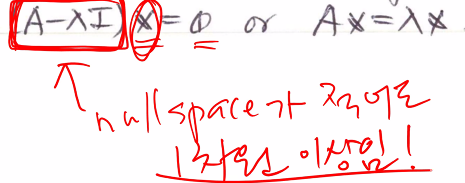 (A-λI)x=0 or Ax=λx
nullspace가 적어도
1차원 이상임!